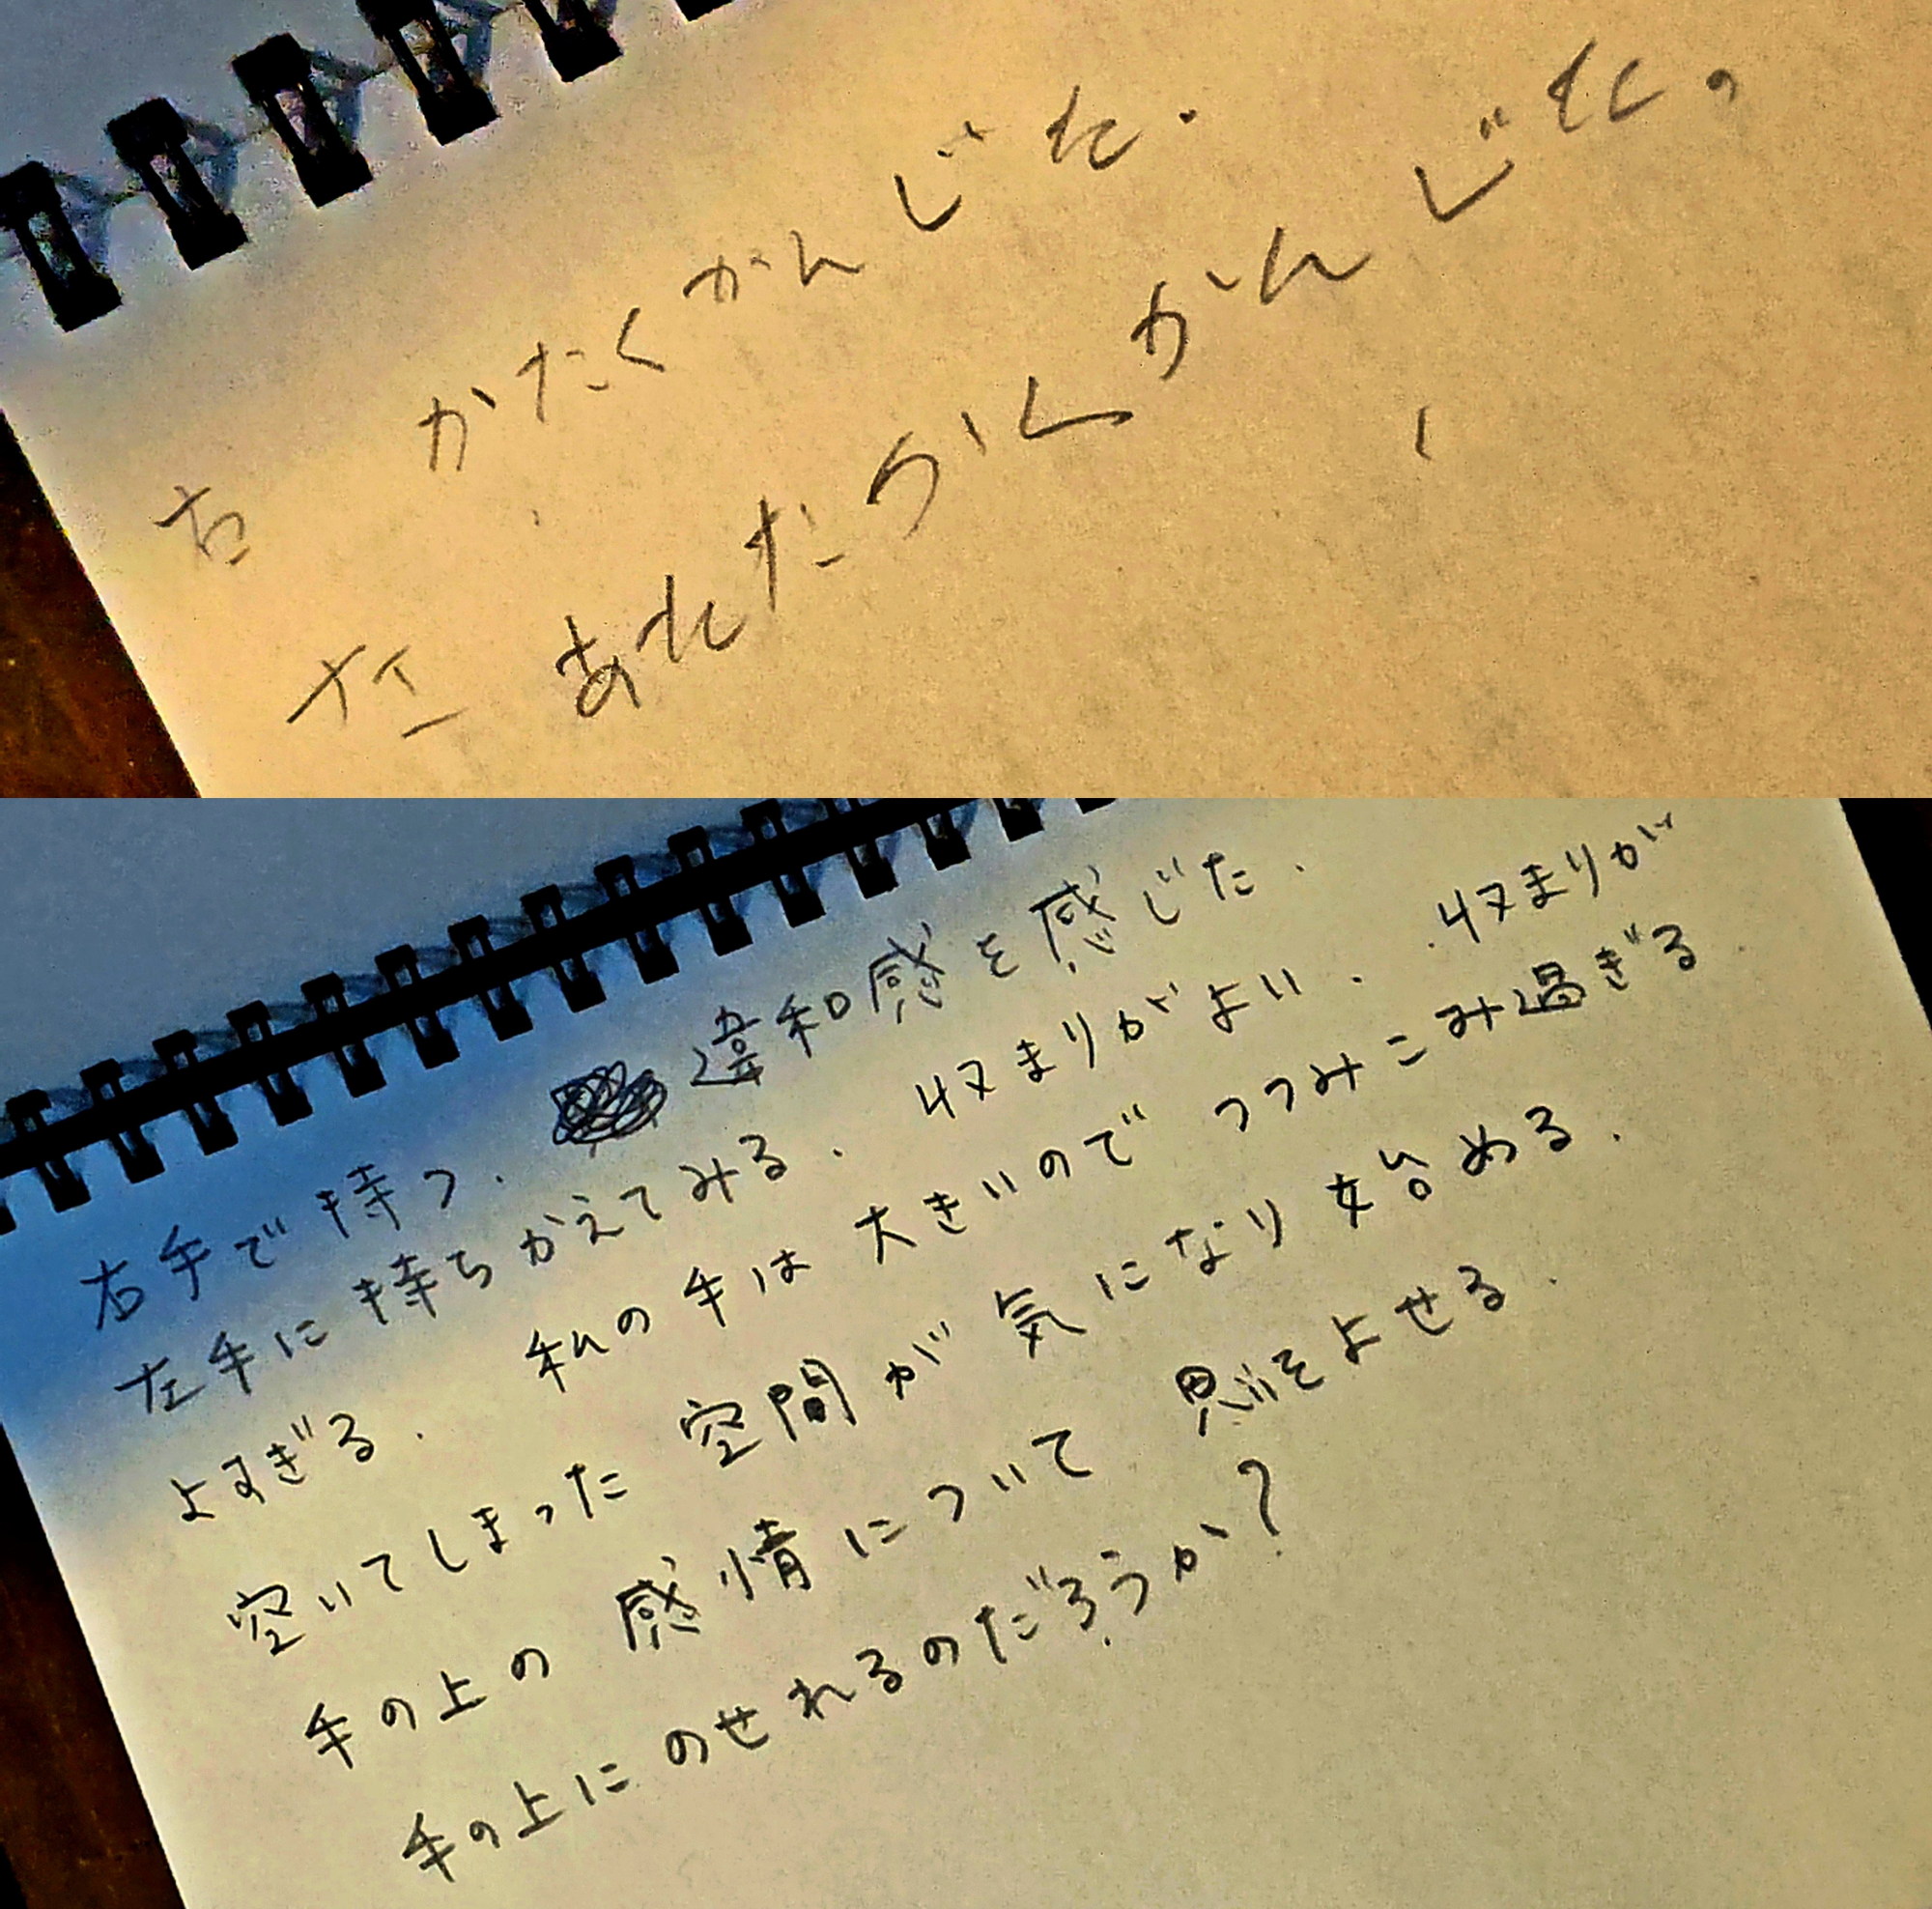 右 かたくかんじた.
左 あたたかくかんじた。
右手で持つ. 違和感を感じた.
左手に持ちかえてみる. 収まりがよい. 収まりが
よすぎる. 私の手は大きいのでつつみこみ過ぎる
空いてしまった空間が気になり始める.
手の上の感情について思いをよせる.
手の上にのせれるのだろうか?